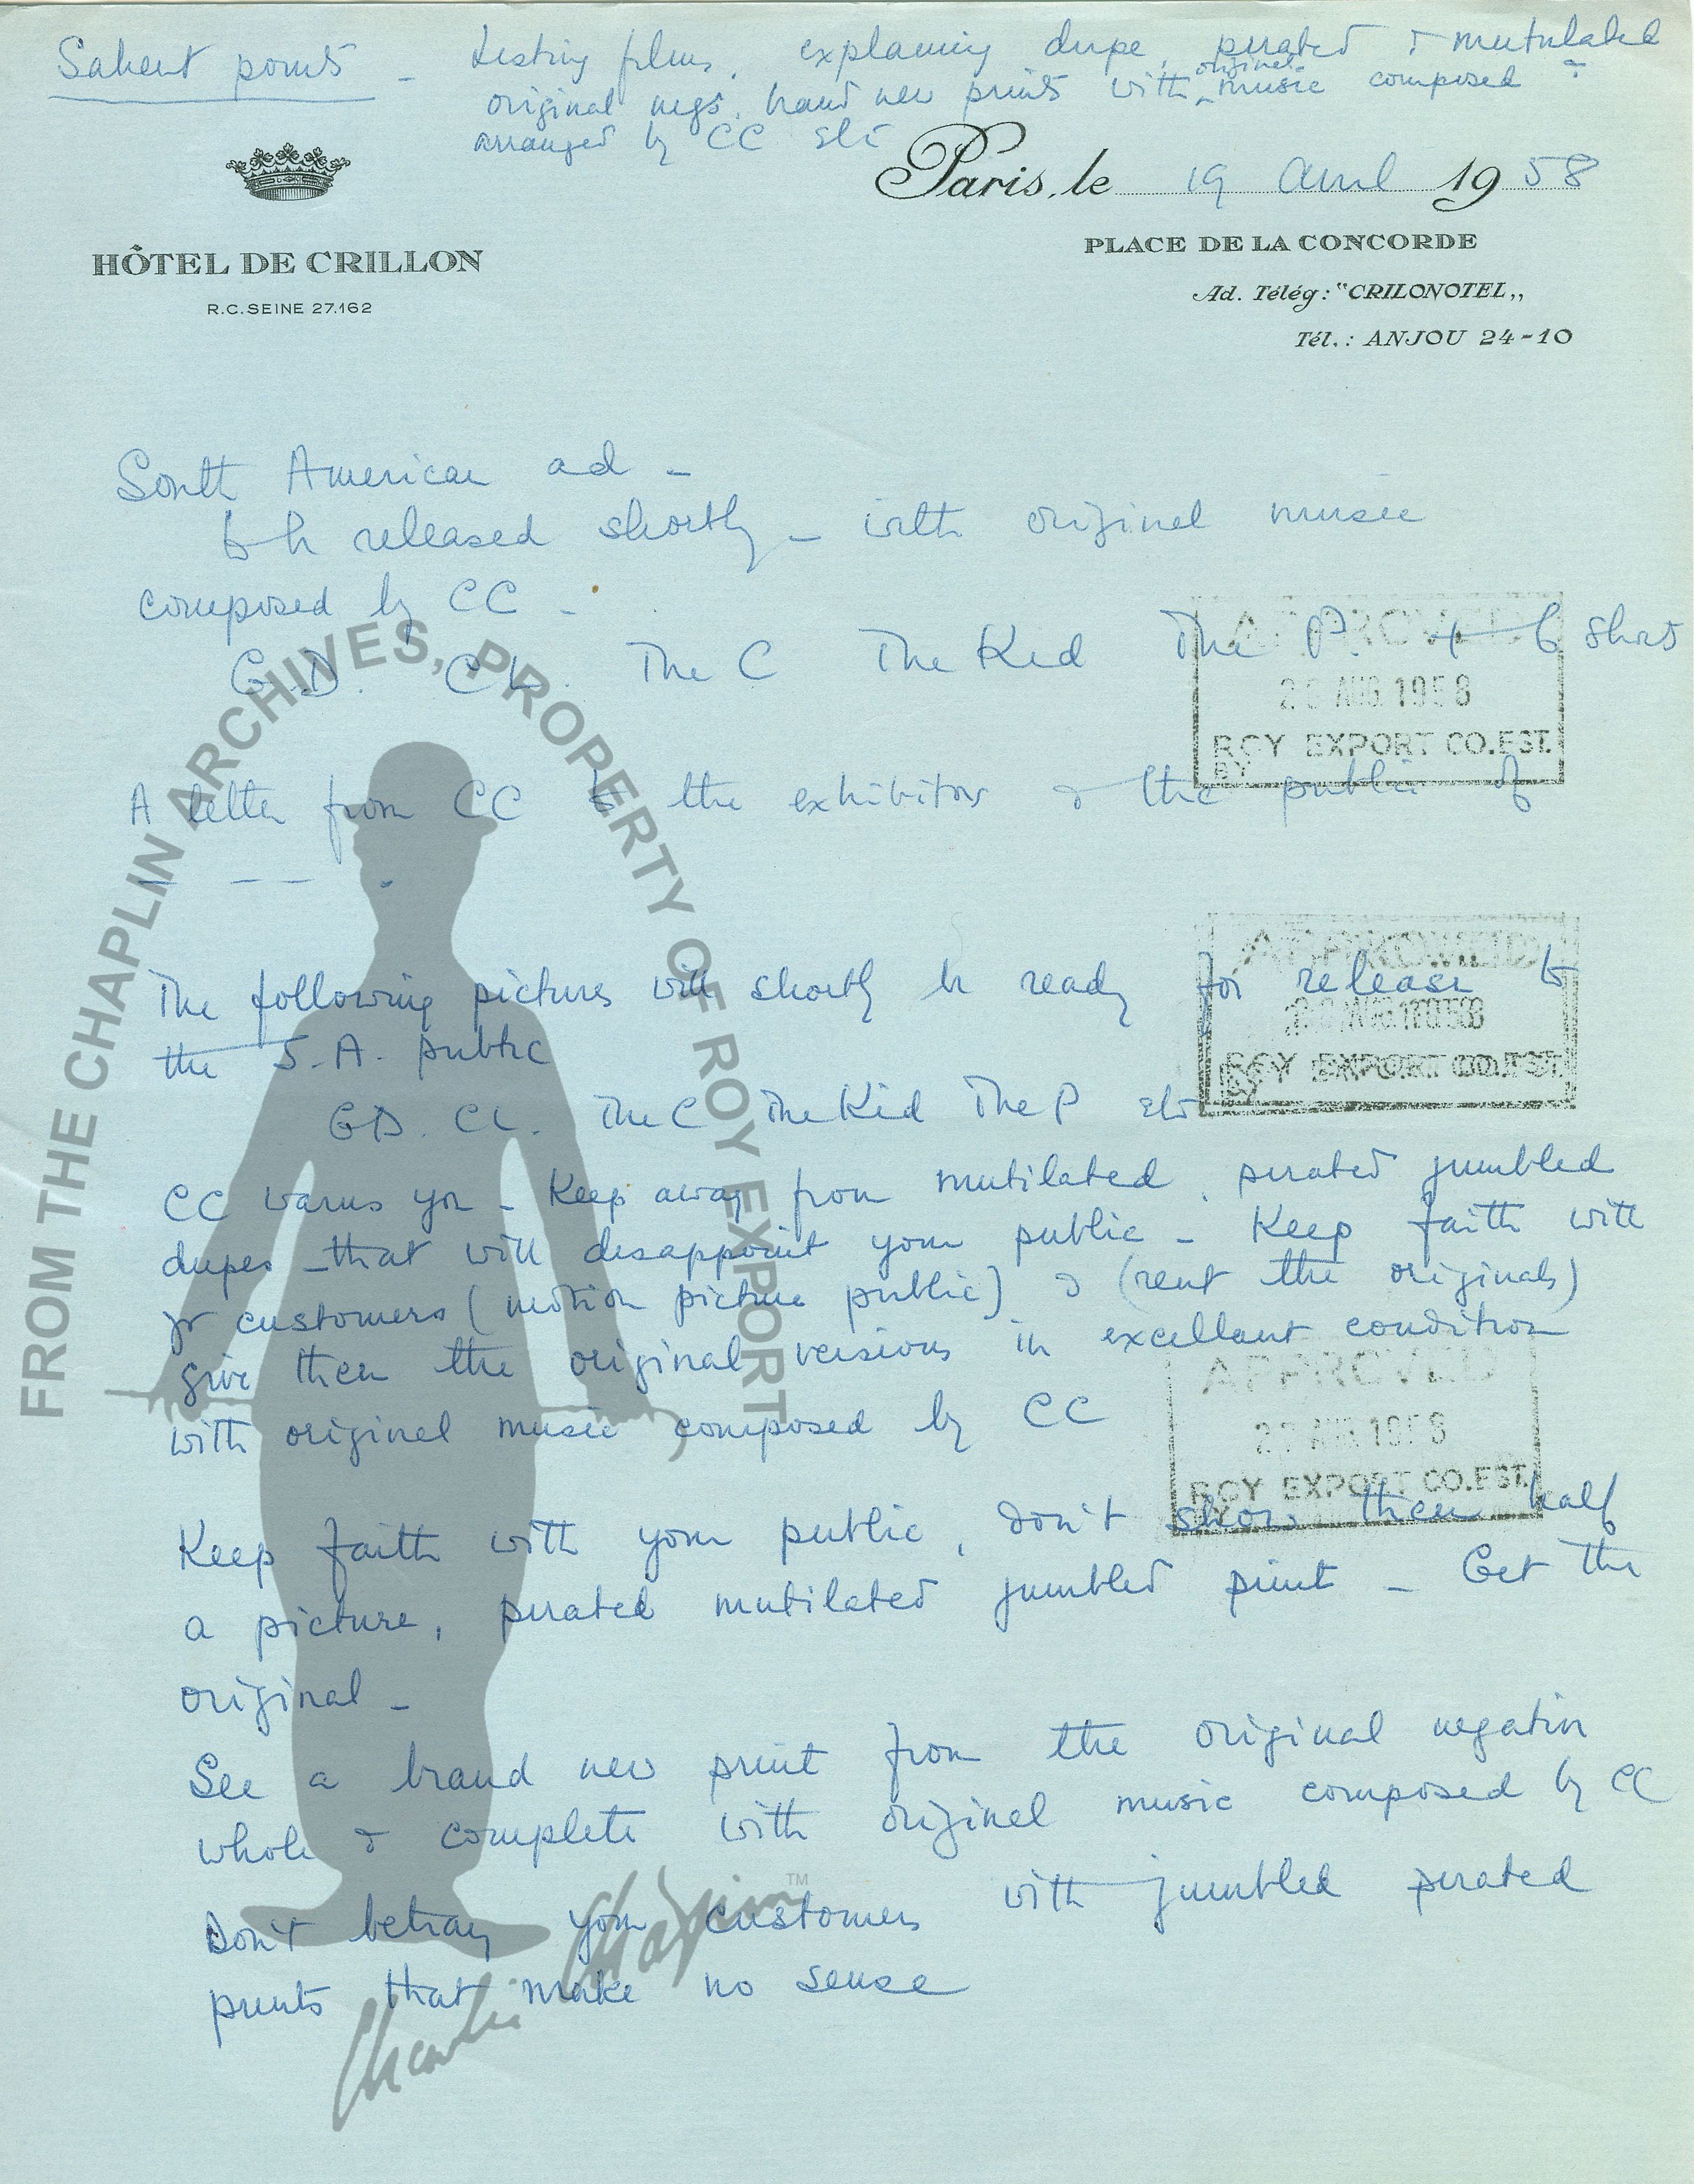 Salient points - Listing films, explaining dupe, pirated & mutulated
original
original negs, brand new prints with music composed &
arranged by CC etc
HÔTEL DE CRILLON
R.C. SEINE 27.162
Paris, le 19 April 1958
PLACE DE LA CONCORDE
Ad. Télég: "CRILONOTEL„
Tél.: ANJOU 24-10
South American ad -
to be released shortly - with original music
composed by CC -
G.D. CL. The C The Kid The P. + 6 shorts
APPROVED
AUG 1958
ROY EXPORT CO. EST.
BY
A letter from CC to the exhibitors & the public of
— — — -
The following pictures will shortly be ready for release to
the S.A. public
APPROVED
AUG 1958
ROY EXPORT CO. EST.
BY
GD. CL. The C The Kid The P etc
CC warns you - Keep away from mutilated, pirated jumbled
dupes - that will disappoint your public - Keep faith with
yr customers (motion picture public) & (rent the originals)
give them the original versions in excellant condition
with original music composed by CC
APPROVED
AUG 1958
ROY EXPORT CO. EST.
Keep faith with your public, don't show them half
a picture, pirated mutilated jumbled print - Get the
original -
See a brand new print from the original negative
whole & complete with original music composed by CC
Don't betray your customers with jumbled pirated
prints that make no sense
FROM THE CHAPLIN ARCHIVES, PROPERTY OF ROY EXPORT
Charlie Chaplin™